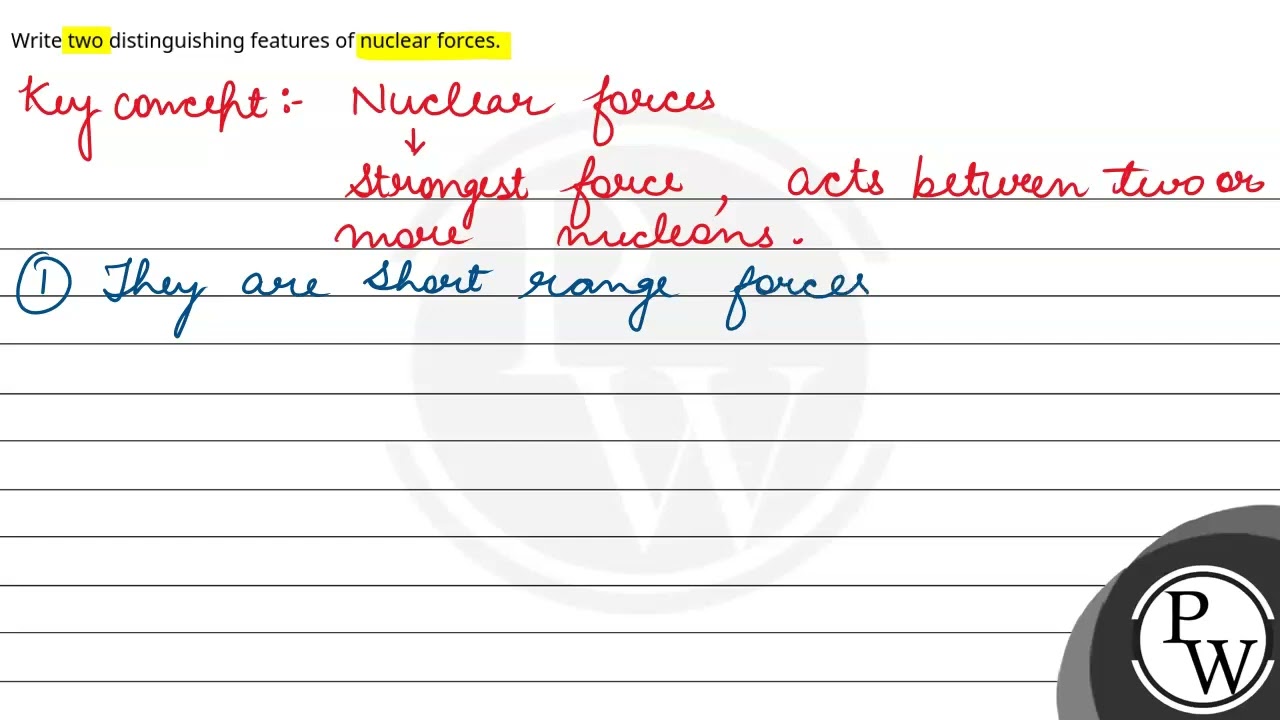 Write two distinguishing features of nuclear forces.
Key concept :- Nuclear forces
↓
Strongest force, acts between two or
more nucleons.
① They are short range forces
PW
PW